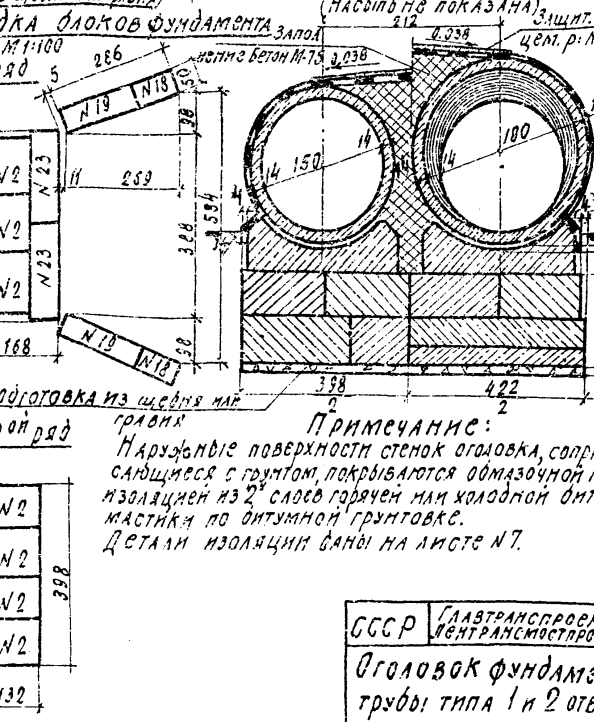 (насыпь не показана)
дка блоков фундамента
М 1:100
ряд
212
Защит.
цем. р:
Запол
нение бетон М-75
0.038
0.038
286
5
50
N 19
N 18
38
N 23
N 23
11
259
388
584
N 2
N 2
N 2
N 19
N 18
38
168
14
150
14
14
100
398
2
422
2
одготовка из щебня или
гравия
ой ряд
Примечание:
Наружные поверхности стенок оголовка, сопри
сающиеся с грунтом, покрываются обмазочной
изоляцией из 2х слоев горячей или холодной бит
мастики по битумной грунтовке.
Детали изоляции даны на листе N7.
N 2
N 2
N 2
N 2
398
132
СССР
Главтранспроек
Лентрансмостпро
Оголовок фундаме
трубы типа 1 и 2 отв